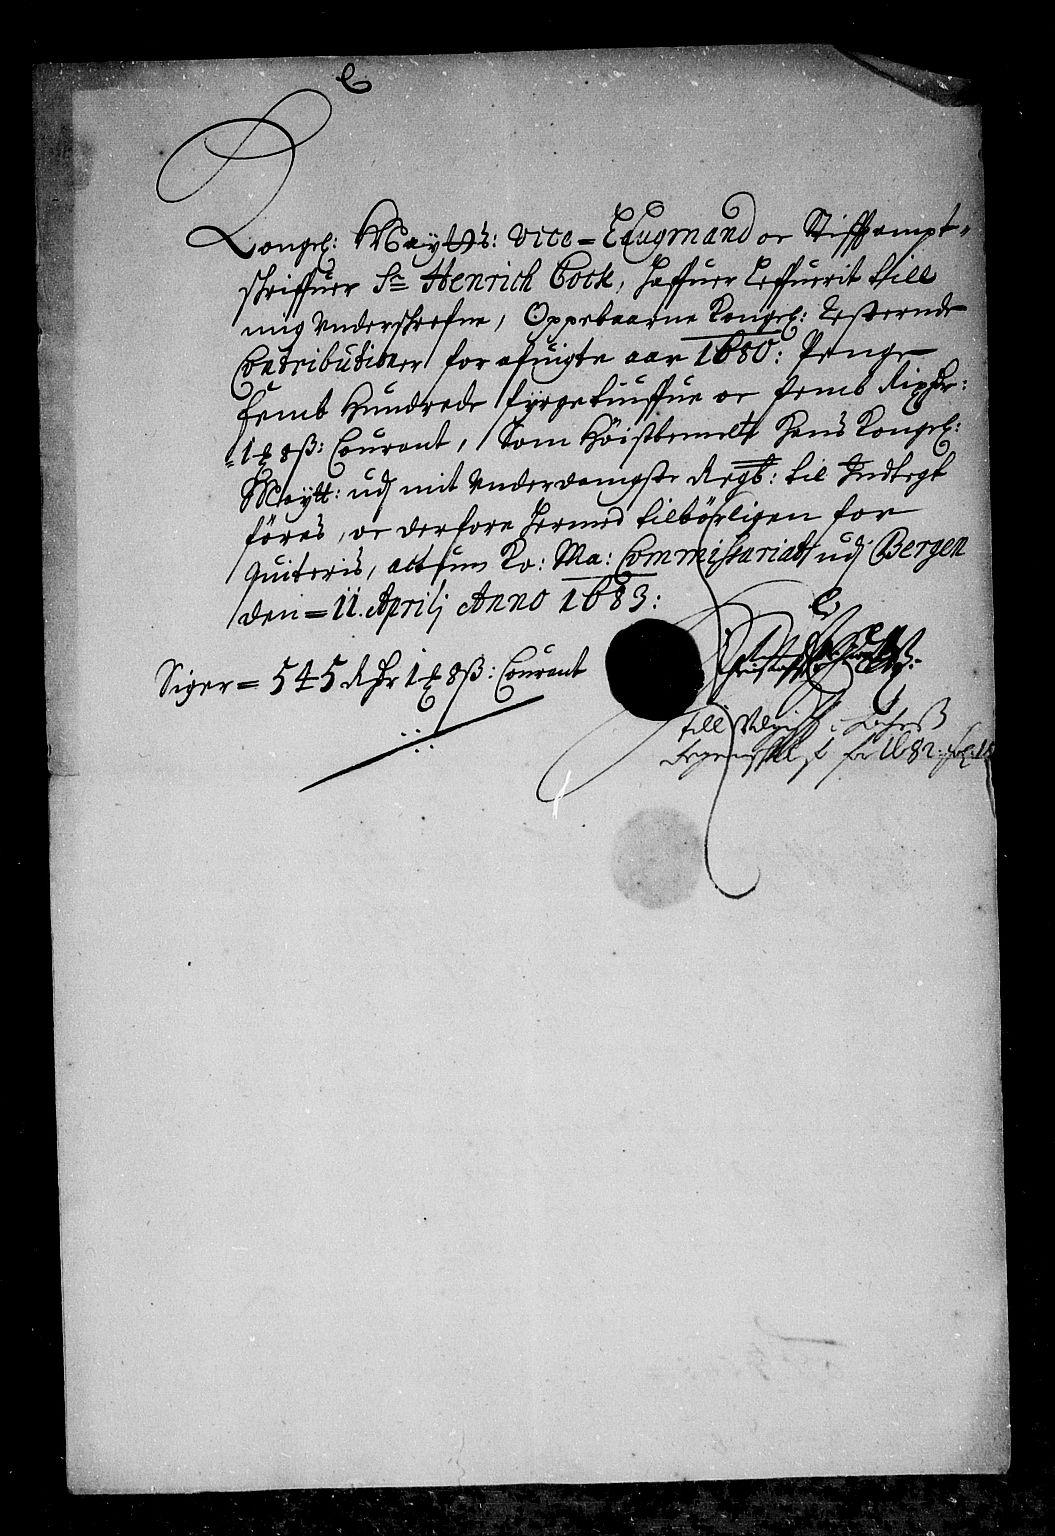 Kongel: Maytts: Vice=Laugmand oc Stifftampt=
skriffuer Sr Henrich Cock, haffuer Leffuerit till
mig Underskrefne, Oppebaarne Kongel: Resterende
Contributioner for afuigte aar 1680: Penge
femb Hundrede fyrgetiuffue oc femb Rixdr:
1 ₰ 8 ß: Courant, Som Höistbemelte Hans Kongel:
Maytt: udj mit Underdanigste Regb: til Indtegt
föres, oc derfore hermed tilbörligen for
quiteris, actum Ko: Ma: Commissariatt udj Bergen
den = 11. Aprilj Anno 1683:
Siger = 545 Rdr 1 ₰ 8 ß: Courant
till
for 1682: fol: 18